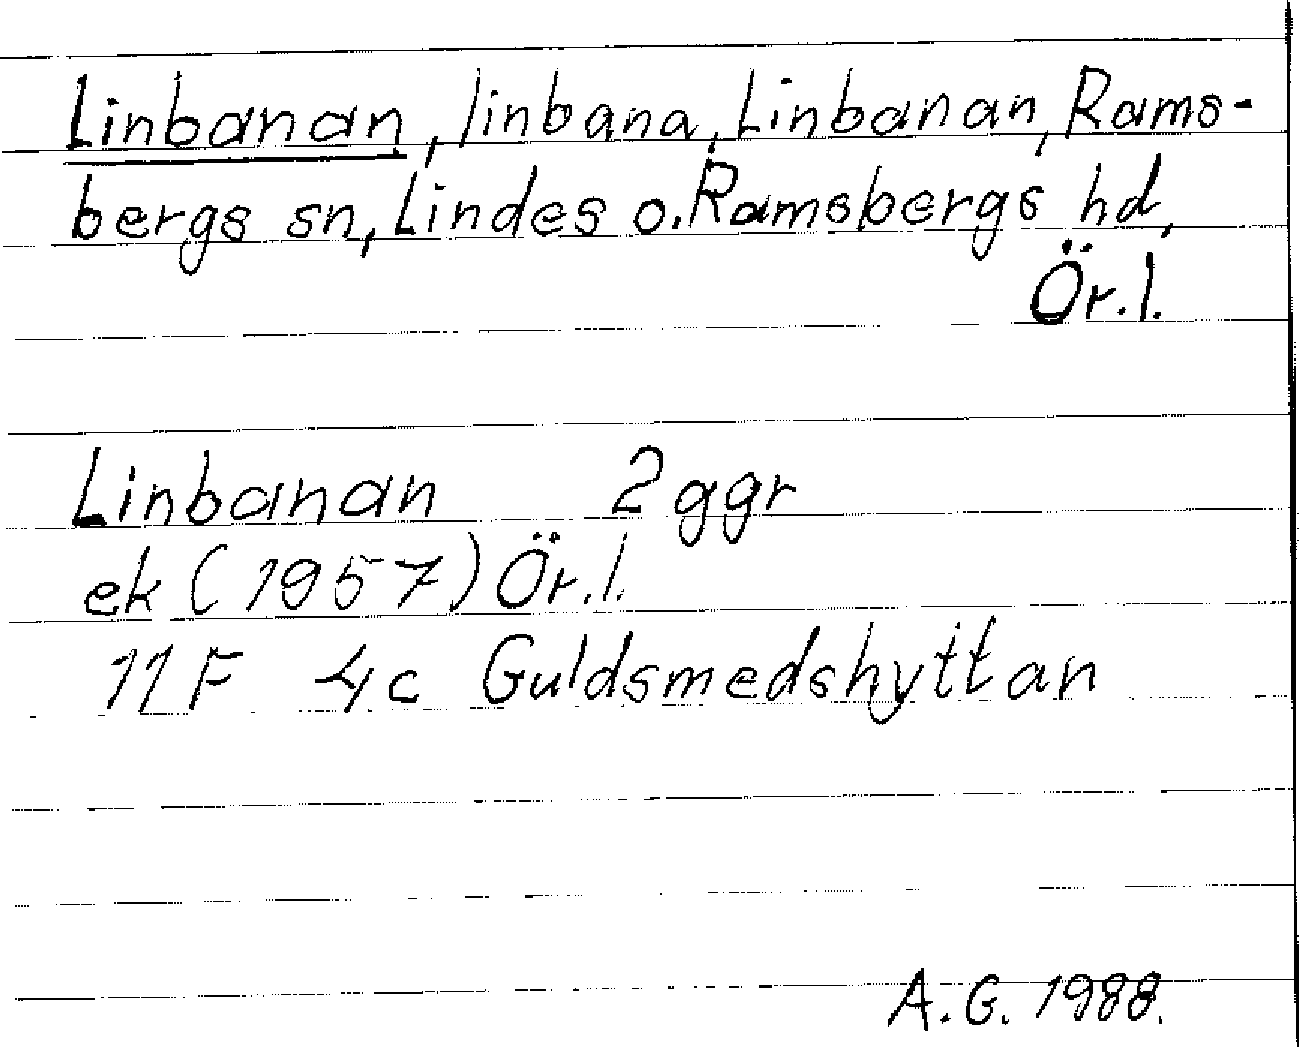 Linbanan, linbana, Linbanan, Rams-
bergs sn, Lindes o. Ramsbergs hd,
Ör. l.
Linbanan 2 ggr
ek (1957) Ör. l.
11F 4c Guldsmedshyttan
A. G. 1988.